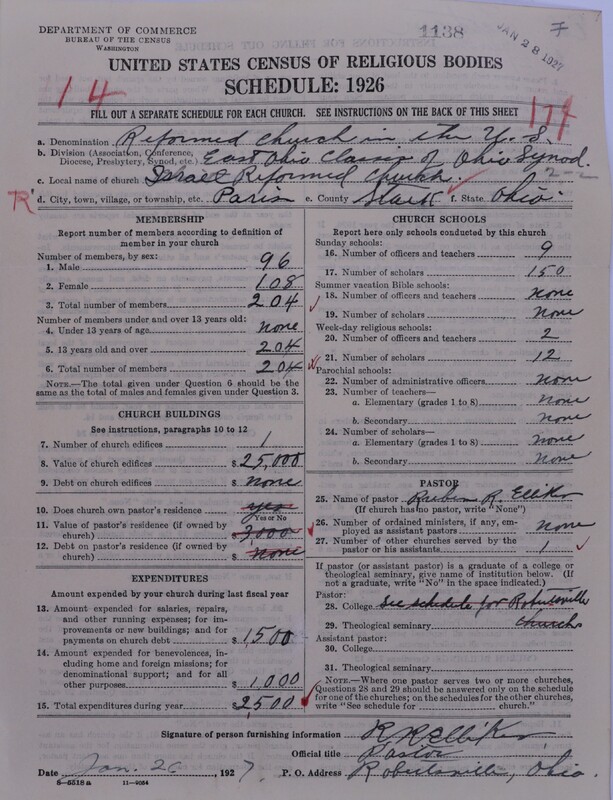 DEPARTMENT OF COMMERCE
BUREAU OF THE CENSUS
WASHINGTON
1138
JAN 28 1927
7
UNITED STATES CENSUS OF RELIGIOUS BODIES
SCHEDULE: 1926
14
114
FILL OUT A SEPARATE SCHEDULE FOR EACH CHURCH. SEE INSTRUCTIONS ON THE BACK OF THIS SHEET
a. Denomination Reformed Church in the U. S.
b. Division (Association, Conference, Diocese, Presbytery, Synod, etc.) East Ohio Classis of Ohio Synod.
c. Local name of church Israel Reformed Church. 2-2
R d. City, town, village, or township, etc. Paris e. County Stark f. State Ohio
MEMBERSHIP
Report number of members according to definition of member in your church
Number of members, by sex:
1. Male 96
2. Female 108
3. Total number of members 204
Number of members under and over 13 years old:
4. Under 13 years of age none
5. 13 years old and over 204
6. Total number of members 204
NOTE.—The total given under Question 6 should be the same as the total of males and females given under Question 3.
CHURCH BUILDINGS
See instructions, paragraphs 10 to 12
7. Number of church edifices 1
8. Value of church edifices $ 25,000
9. Debt on church edifices $ none
10. Does church own pastor's residence? yes
Yes or No
11. Value of pastor's residence (if owned by church) $ 3,000
12. Debt on pastor's residence (if owned by church) $ none
EXPENDITURES
Amount expended by your church during last fiscal year
13. Amount expended for salaries, repairs, and other running expenses; for improvements or new buildings; and for payments on church debt $ 1500
14. Amount expended for benevolences, including home and foreign missions; for denominational support; and for all other purposes $ 1,000
15. Total expenditures during year $ 2500
CHURCH SCHOOLS
Report here only schools conducted by this church
Sunday schools:
16. Number of officers and teachers 9
17. Number of scholars 150
Summer vacation Bible schools:
18. Number of officers and teachers none
19. Number of scholars none
Week-day religious schools:
20. Number of officers and teachers 2
21. Number of scholars 12
Parochial schools:
22. Number of administrative officers none
23. Number of teachers—
a. Elementary (grades 1 to 8) none
b. Secondary none
24. Number of scholars—
a. Elementary (grades 1 to 8) none
b. Secondary none
PASTOR
25. Name of pastor Ruben R. Elliker
(If church has no pastor, write "None")
26. Number of ordained ministers, if any, employed as assistant pastors none
27. Number of other churches served by the pastor or his assistants 1
If pastor (or assistant pastor) is a graduate of a college or theological seminary, give name of institution below. (If not a graduate, write "No" in the space indicated.)
Pastor:
28. College See schedule for Robertsville
29. Theological seminary church
Assistant pastor:
30. College
31. Theological seminary
NOTE.—Where one pastor serves two or more churches, Questions 28 and 29 should be answered only on the schedule for one of the churches; on the schedules for the other churches, write "See schedule for church."
Signature of person furnishing information R R Elliker
Official title Pastor
Date Jan. 26, 1927
P. O. Address Robertsville, Ohio.
8-5518a 11-9054